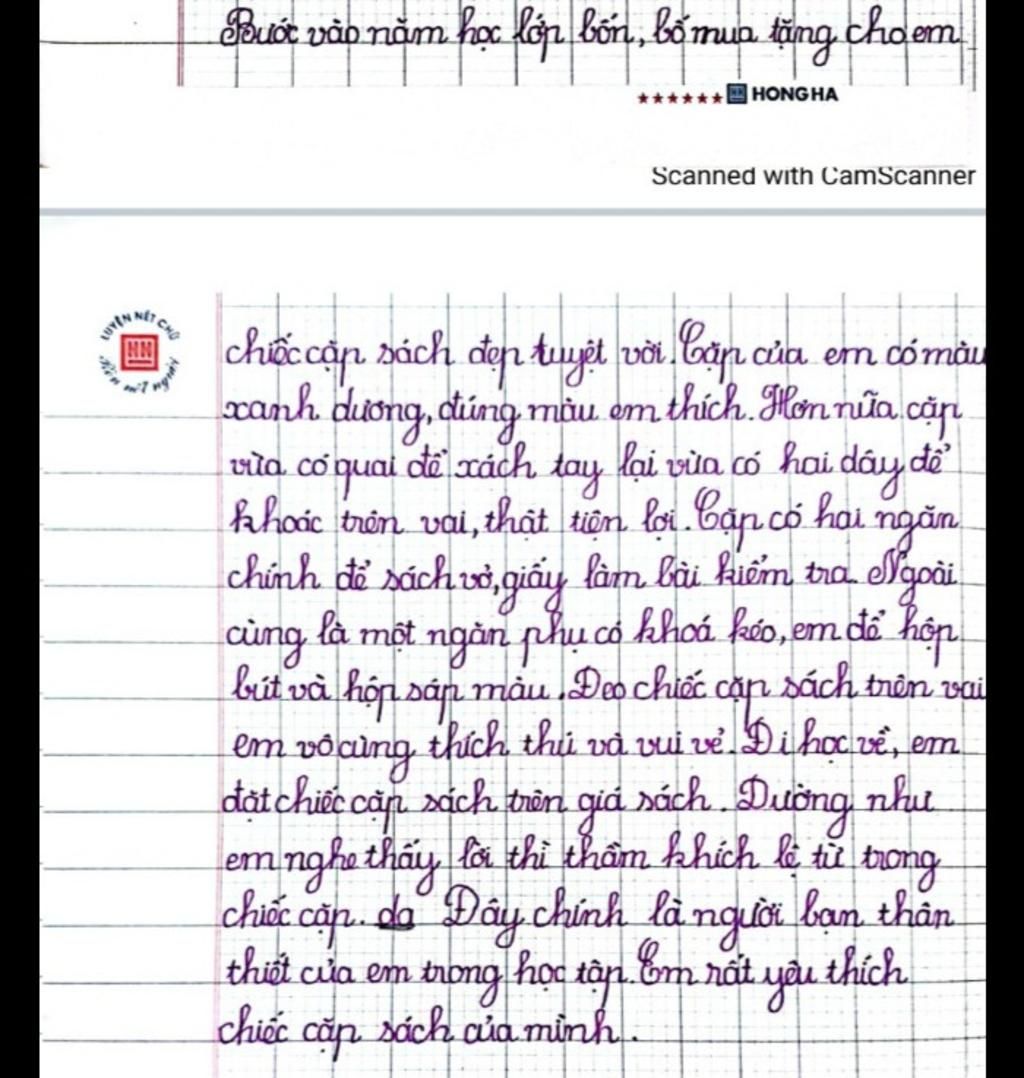 Bước vào năm học lớp bốn, bố mua tặng cho em
HONG HA
Scanned with CamScanner
LUYỆN NÉT CHỮ
Rèn nết người
chiếc cặp sách đẹp tuyệt vời. Cặp của em có màu
xanh dương, đúng màu em thích. Hơn nữa cặp
vừa có quai để xách tay lại vừa có hai dây để
khoác trên vai, thật tiện lợi. Cặp có hai ngăn
chính để sách vở, giấy làm bài kiểm tra. Ngoài
cùng là một ngăn phụ có khoá kéo, em để hộp
bút và hộp sáp màu. Đeo chiếc cặp sách trên vai
em vô cùng thích thú và vui vẻ. Đi học về, em
đặt chiếc cặp sách trên giá sách. Dường như
em nghe thấy lời thì thầm khích lệ từ trong
chiếc cặp. da Đây chính là người bạn thân
thiết của em trong học tập. Em rất yêu thích
chiếc cặp sách của mình.